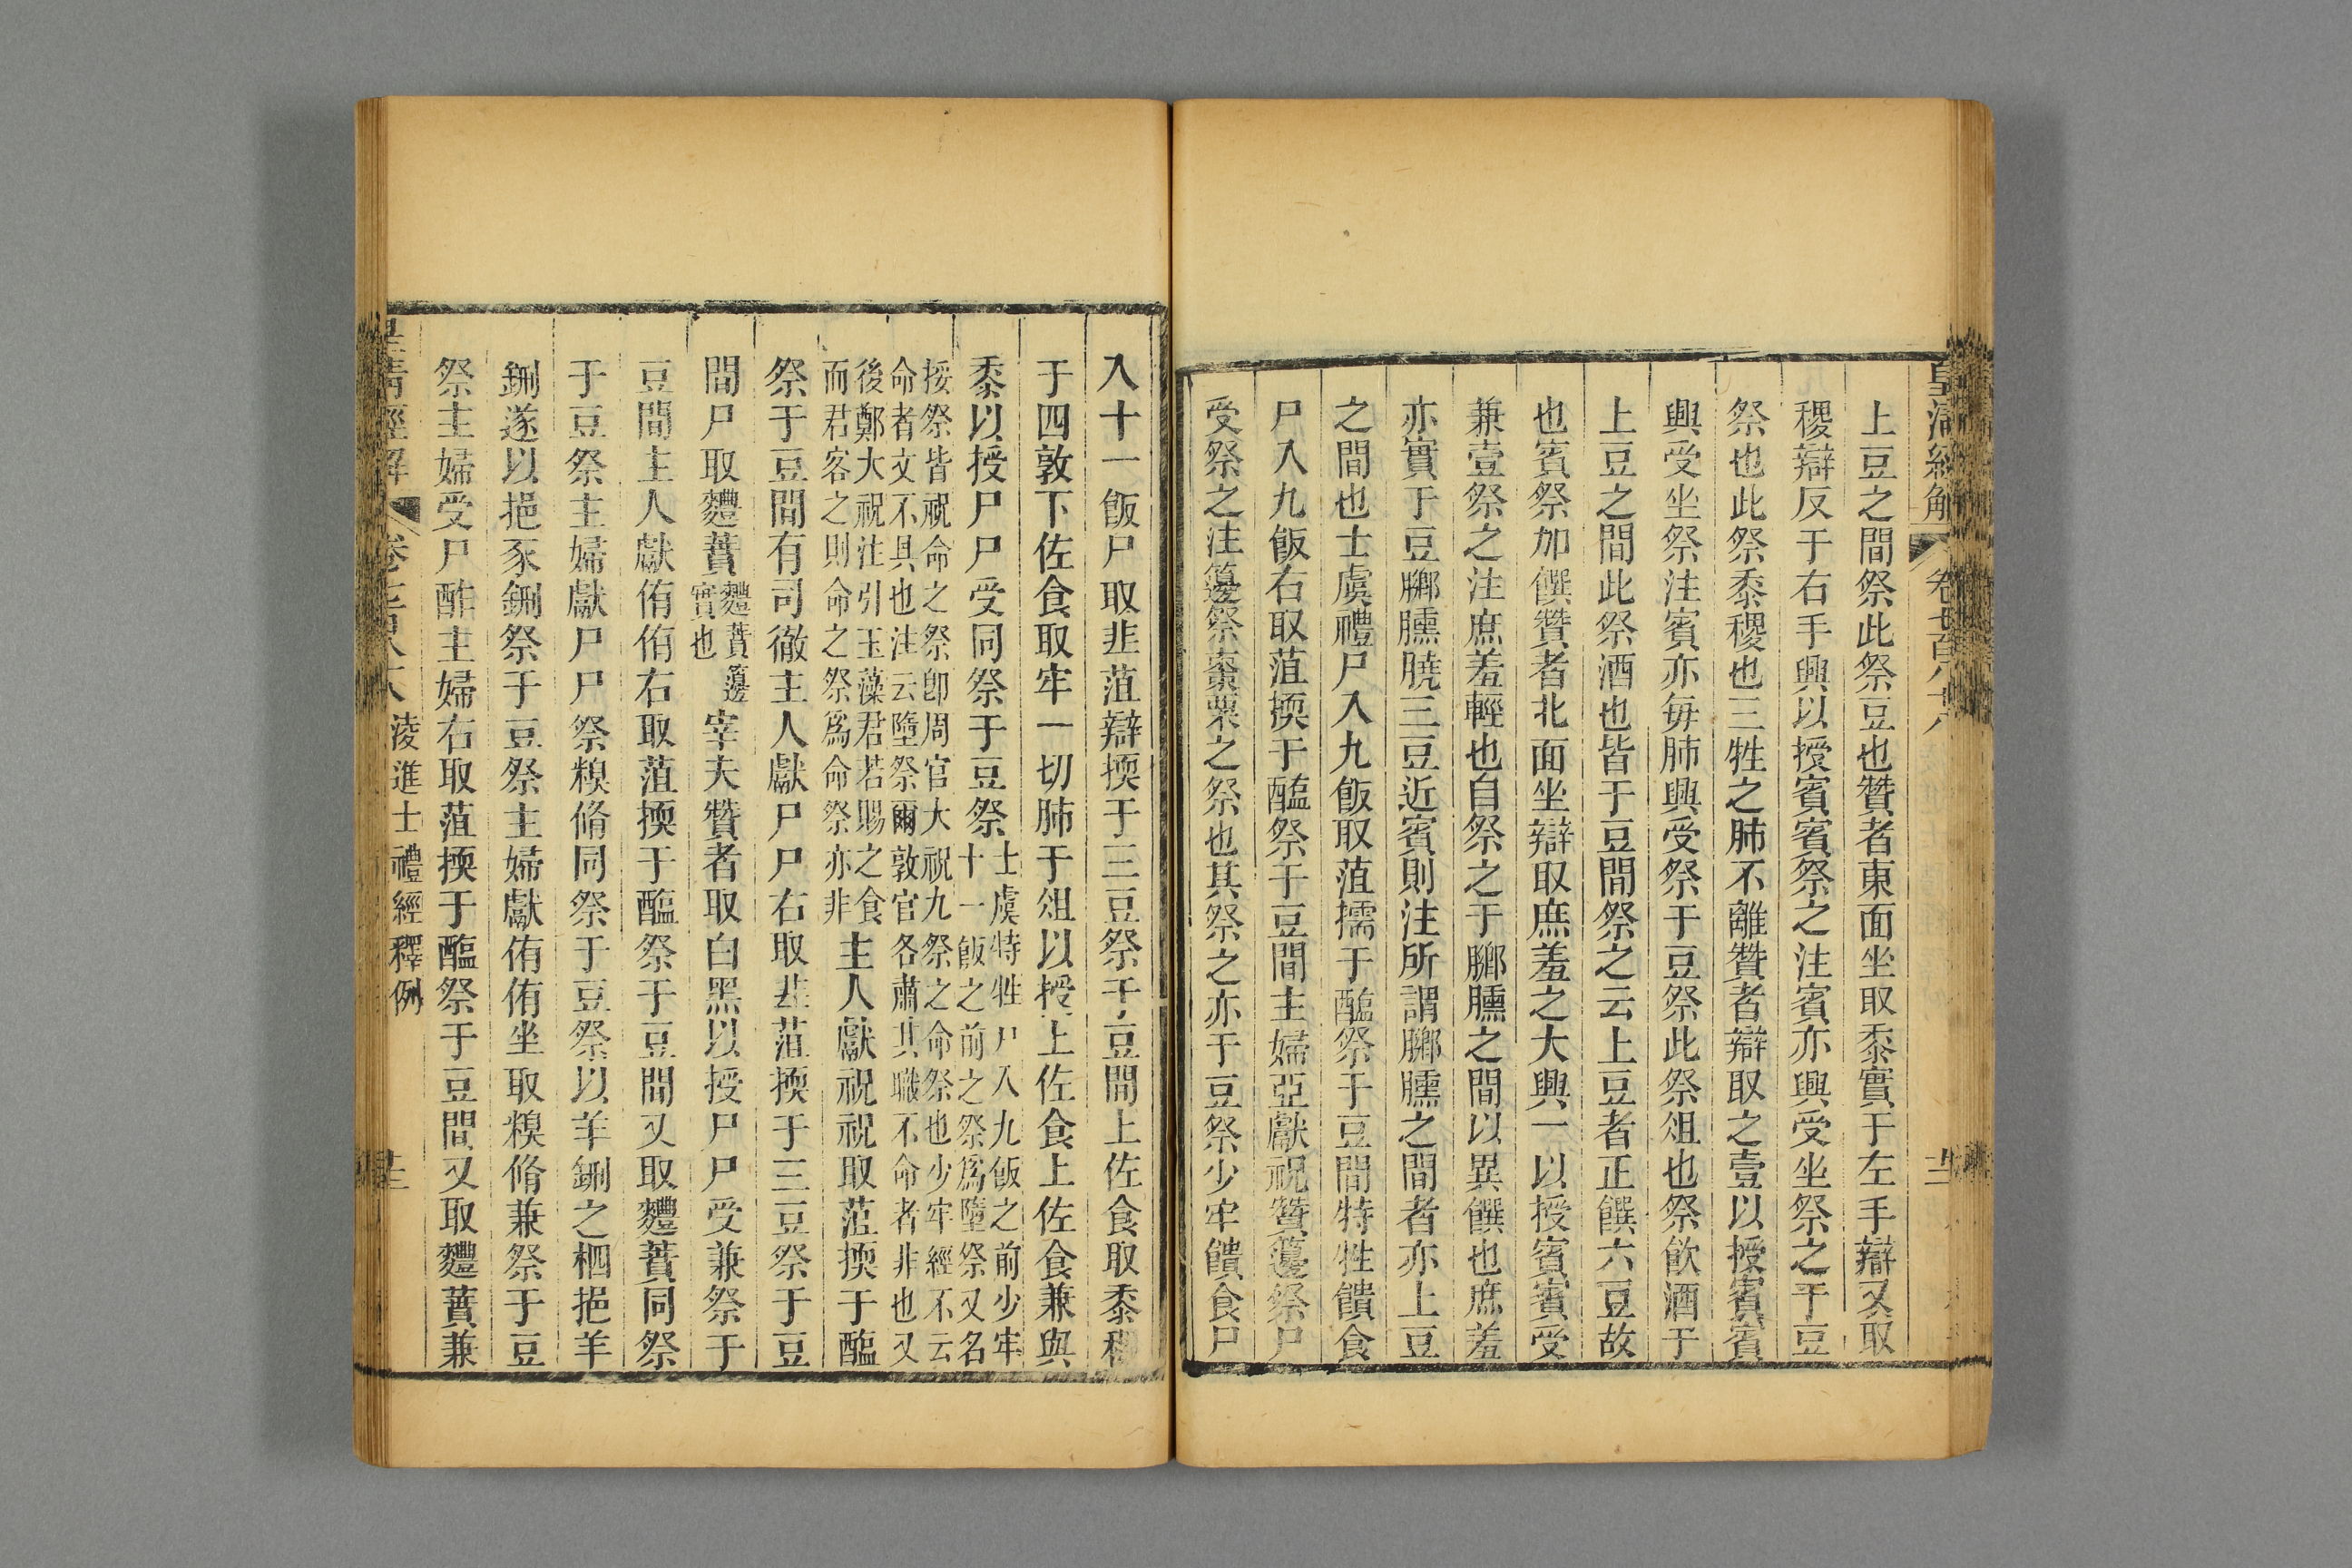 上豆之間祭此祭豆也贊者東面坐取黍實于左手辯又取
稷辯反于右手興以授賓賓祭之注賓亦興受坐祭之于豆
祭也此祭黍稷也三牲之肺不離贊者辯取之壹以授賓賓
興受坐祭注賓亦每肺興受祭于豆祭此祭俎也祭飲酒于
上豆之間此祭酒也皆于豆間祭之云上豆者正饌六豆故
也賓祭加饌贊者北面坐辯取庶羞之大興一以授賓賓受
兼壹祭之注庶羞輕也自祭之于膷臐之間以異饌也庶羞
亦實于豆膷臐膮三豆近賓則注所謂膷臐之間者亦上豆
之間也士虞禮尸入九飯取菹擩于醢祭于豆間特牲饋食
尸入九飯右取菹㨎于醢祭于豆間主婦亞獻祝贊籩祭尸
受祭之注籩祭棗栗之祭也其祭之亦于豆祭少牢饋食尸
入十一飯尸取韭菹辯㨎于三豆祭于豆間上佐食取黍稷
于四敦下佐食取牢一切肺于俎以授上佐食上佐食兼與
黍以授尸尸受同祭于豆祭士虞特牲尸入九飯之前少牢
十一飯之前之祭爲墮祭又名
挼祭皆祝命之祭卽周官大祝九祭之命祭也少牢經不云
命者文不具也注云墮祭爾敦官各肅其職不命者非也又
後鄭大祝注引玉藻君若賜之食
而君客之則命之祭爲命祭亦非主人獻祝祝取菹㨎于醢
祭于豆間有司徹主人獻尸尸右取韭菹㨎于三豆祭于豆
間尸取麷蕡麷蕡籩
實也宰夫贊者取白黑以授尸尸受兼祭于
豆間主人獻侑侑右取菹㨎于醢祭于豆間又取麷蕡同祭
于豆祭主婦獻尸尸祭糗脩同祭于豆祭以羊鉶之柶挹羊
鉶遂以挹豕鉶祭于豆祭主婦獻侑侑坐取糗脩兼祭于豆
祭主婦受尸酢主婦右取菹㨎于醢祭于豆間又取麷蕡兼
淩進士禮經釋例